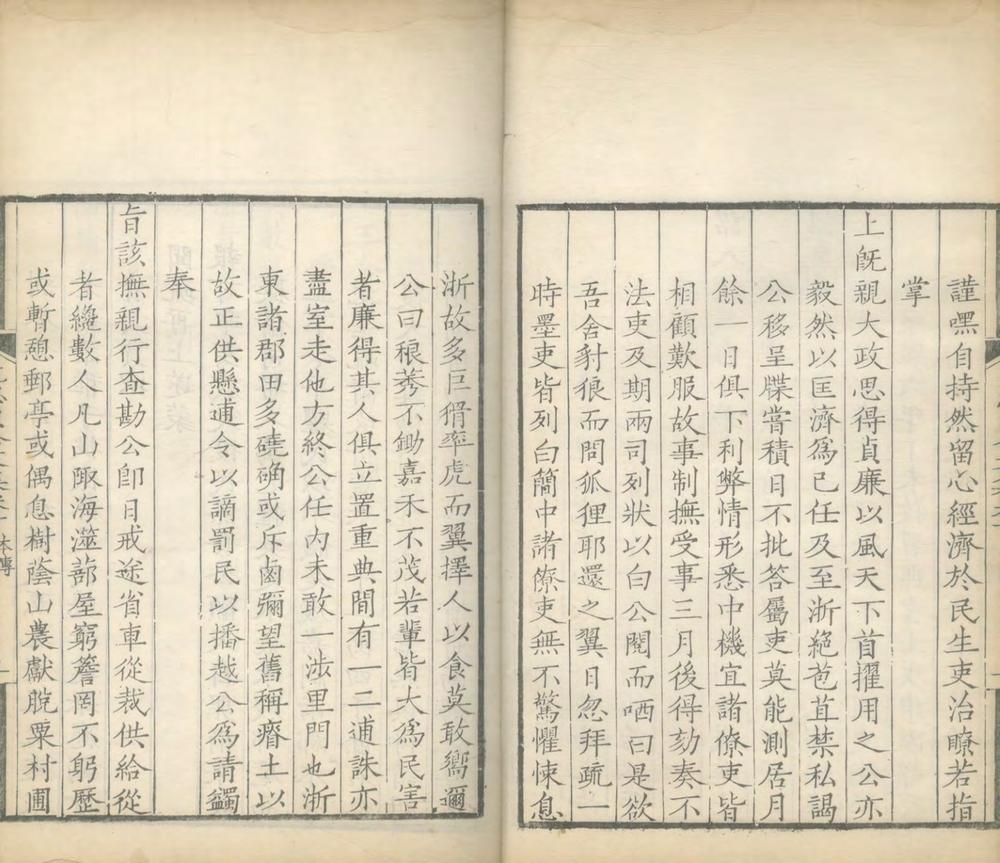 謹嘿自持然留心經濟於民生吏治瞭若指
掌
上旣親大政思得貞廉以風天下首擢用之公亦
毅然以匡濟爲已任及至浙絕苞苴禁私謁
公移呈牒嘗積日不批答屬吏莫能測居月
餘一日俱下利弊情形悉中機宜諸僚吏皆
相顧歎服故事制撫受事三月後得劾奏不
法吏及期兩司列狀以白公閱而哂曰是欲
吾舍豺狼而問狐狸耶還之翼日忽拜疏一
時墨吏皆列白簡中諸僚吏無不驚懼悚息
浙故多巨猾率虎而翼擇人以食莫敢嚮邇
公曰稂莠不鋤嘉禾不茂若輩皆大爲民害
者廉得其人俱立置重典間有一二逋誅亦
盡室走他方終公任內未敢一涉里門也浙
東諸郡田多磽确或斥鹵彌望舊稱瘠土以
故正供懸逋令以謫罰民以播越公爲請蠲
奉
旨該撫親行查勘公卽日戒途省車從裁供給從
者纔數人凡山陬海澨蔀屋窮簷罔不躬歷
或暫憩郵亭或偶息樹蔭山農獻脫粟村圃
本傳